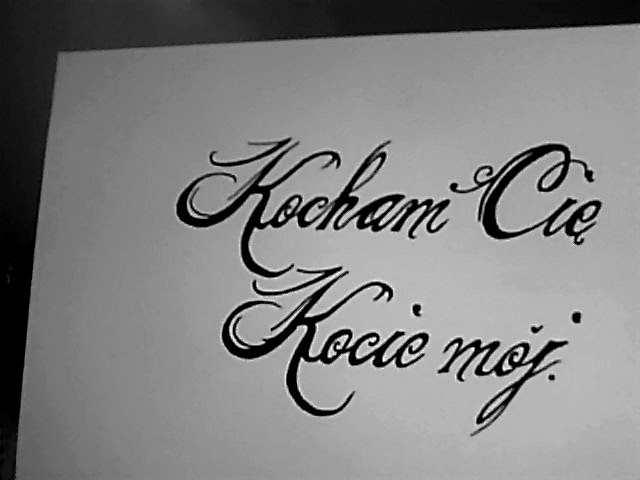 Kocham Cię
Kocie mój.